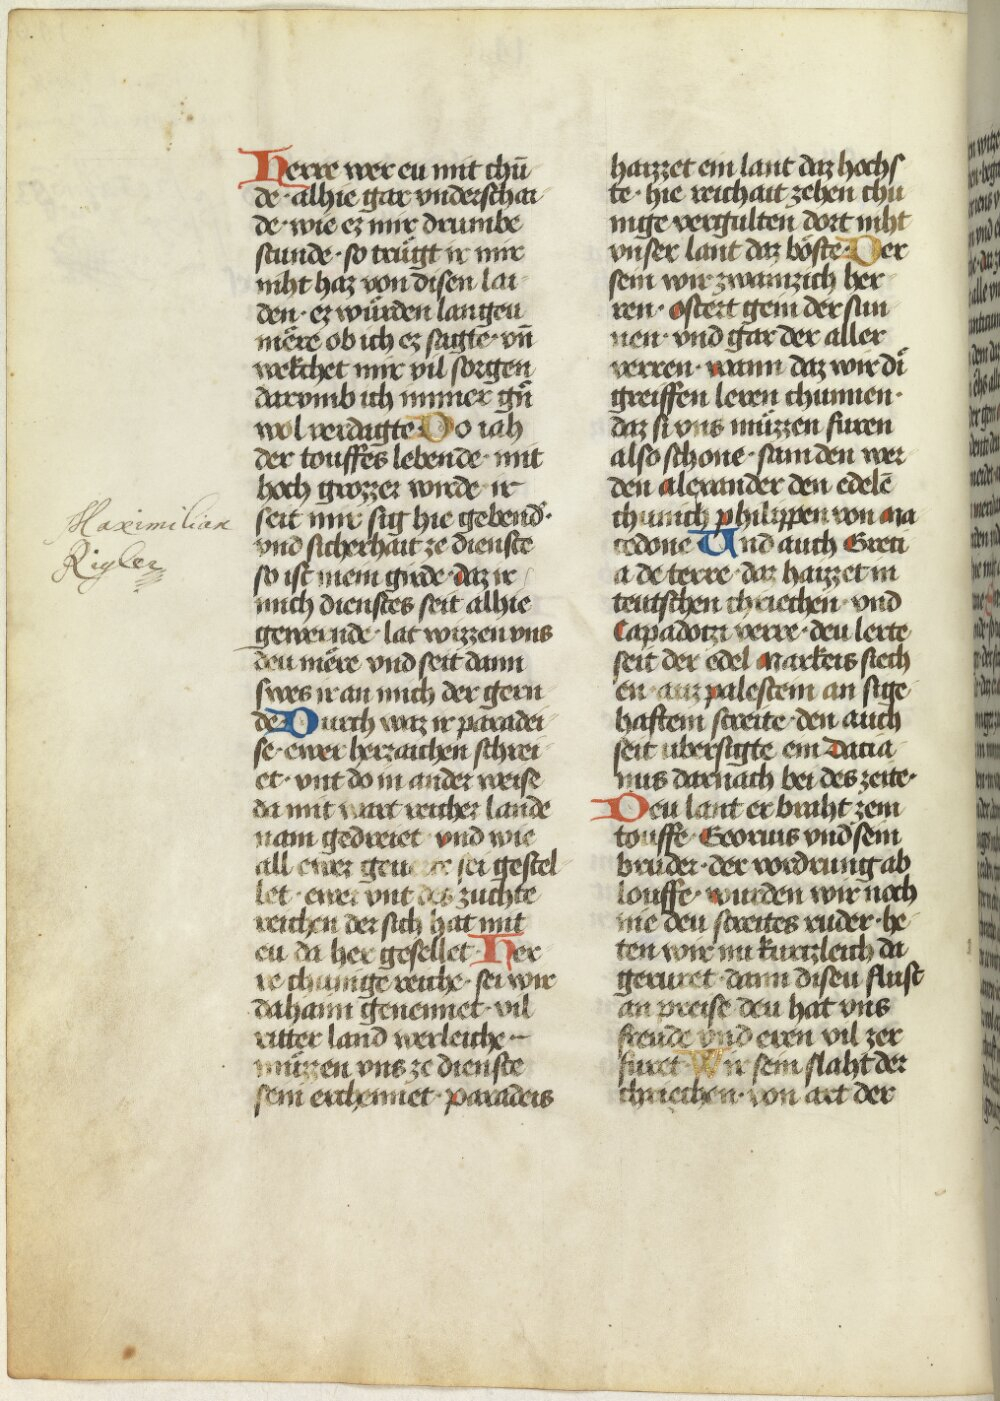 Herre wer eu mit chū
de · alhie gar vnderschai
de · wie ez mir drumbe
stunde · so trůgt ir mir
niht haz von disen lai
den · ez wůrden langeu
mêre ob ich ez sagte · vñ
wekchet mir vil sorgen
darvmb ich immer gñ
wol verdagte Do iah
der touffes lebende · mit
hoch grozzer wirde · ir
seit mir sig hie gebend ·
vnd sicherhait ze dienste
so ist mein girde · daz ir
mich dienstes seit alhie
gewernde · lat wizzen vns
deu mêre vnd seit dann
swes ir an mich der gern
de Durch waz ir paradei
se · ewer herzaichen schrei
et · vnt do in ander weise
da mit wart reicher lande
nam gedreiet · vnd wie
all ewer sei gestel
let · ewer vnt des zuchte
reichen der sich hat mit
eu da her gesellet · Her
re chunige reiche · sei wir
dahaim genennet · vil
ritter land werleiche ·
můzzen vns ze dienste
sein erchennet · paradeis
Maximilian
Rigler
haizzet ein lant daz hochs
te · hie reichait zehen chu
nige vergulten dort niht
vnser lant daz böste · Der
sein wir zwainzich her
ren · ostert gein der sun
nen · vnd gar der aller
verren · wann daz wir di
greiffen leren chunnen ·
daz si vns můzzen furen
also schone · sam den wer
den alexander den edelē
chunich philippen von ma
cedone Und auch Greci
a de terre · daz haizzet in
teutschen chriechen · vnd
Capadotzi verre · deu lerte
seit der edel markeis siech
en · auz palestein an sige
haftem streite · den auch
seit vbersigte ein Datia
nus darnach bei des zeite ·
Deu lant er braht zem
touffe · Georius vnd sein
bruder · der vordrung ab
louffe · wurden wir noch
nie deu streites ruder · he
ten wir nu kurtzleich da
geruret · dann diseu flust
an preise deu hat vns
freude vnd eren vil zer
furet · Wir sein slaht der
chriechen · von art der